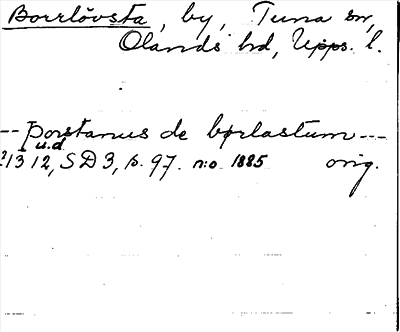 Borrlövsta, by, Tuna sn,
Olands hd, Upps. l.
-- þorstanus de børlastum ---
u.d
?1312, SD 3, s. 97. n:o 1885 orig.